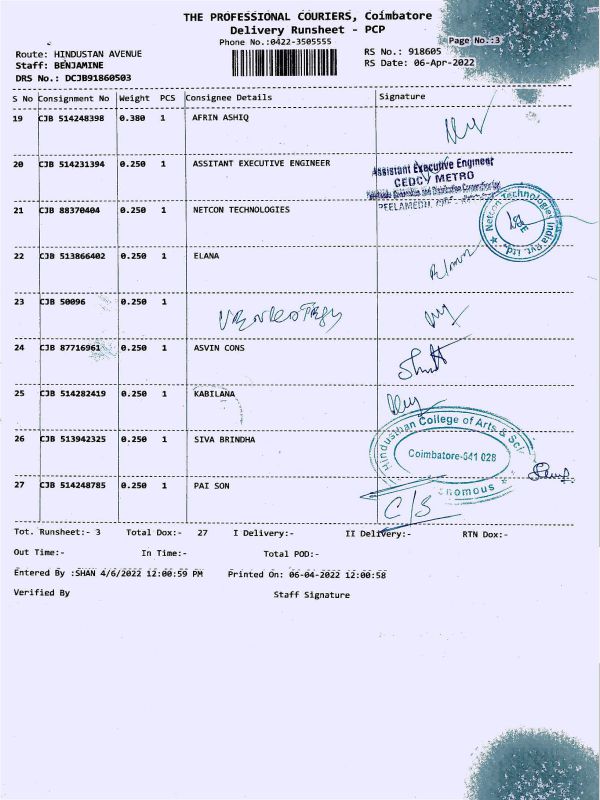 THE PROFESSIONAL COURIERS, Coimbatore
Delivery Runsheet - PCP
Phone No.:0422-3505555
Page No.:3
Route: HINDUSTAN AVENUE
RS No.: 918605
Staff: BENJAMINE
RS Date: 06-Apr-2022
DRS No.: DCJB91860503
S No Consignment No Weight PCS Consignee Details Signature
19 CJB 514248398 0.380 1 AFRIN ASHIQ
20 CJB 514231394 0.250 1 ASSITANT EXECUTIVE ENGINEER
Assistant Executive Engineer
CEDC/ METRO
21 CJB 88370404 0.250 1 NETCON TECHNOLOGIES
PEELAMEDU
Netcon Technologies India Pvt. Ltd.
22 CJB 513866402 0.250 1 ELANA
23 CJB 50096 0.250 1
24 CJB 87716961 0.250 1 ASVIN CONS
25 CJB 514282419 0.250 1 KABILANA
26 CJB 513942325 0.250 1 SIVA BRINDHA
Hindusthan College of Arts & Sci
Coimbatore-641 028
nomous
27 CJB 514248785 0.250 1 PAI SON
C/S
Tot. Runsheet:- 3 Total Dox:- 27 I Delivery:- II Delivery:- RTN Dox:-
Out Time:- In Time:- Total POD:-
Entered By :SHAN 4/6/2022 12:00:59 PM Printed On: 06-04-2022 12:00:58
Verified By Staff Signature